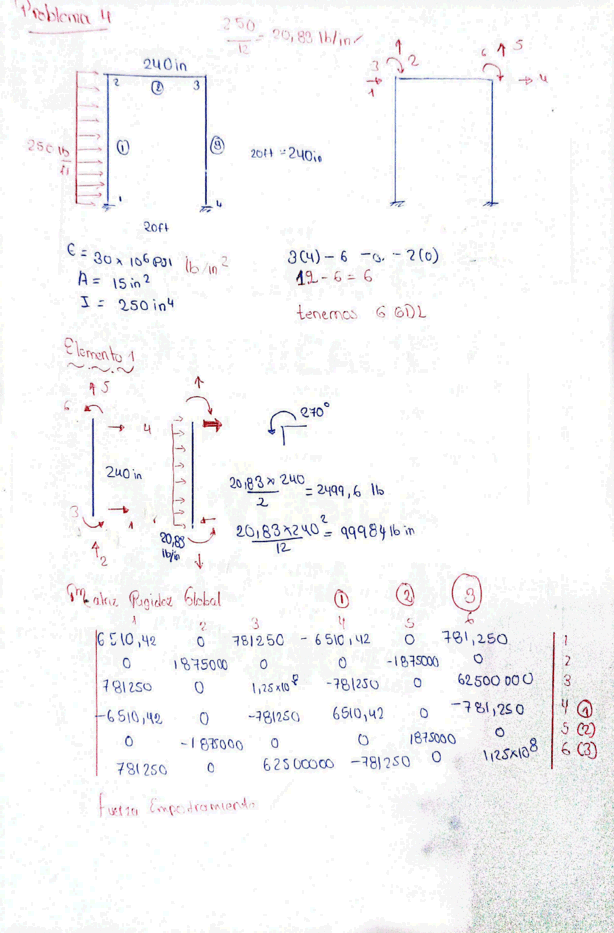 Problema 4
250/12 = 20,83 lb/in
240in
2 ② 3
250 lb/ft
①
③
20ft = 240in
1
4
20ft
3 2
1
6 5
4
E = 30 x 10⁶ PSI lb/in²
A = 15 in²
I = 250 in⁴
3(4) - 6 - 0 - 2(0)
12 - 6 = 6
tenemos 6 GDL
Elemento 1
6 5
4
240 in
3
1
2
20,83 lb/in
270°
20,83 x 240 / 2 = 2499,6 lb
20,83 x 240² / 12 = 99984 lb in
Matriz Rigidez Global ① ② ③
1 2 3 4 5 6
6510,42 0 781250 -6510,42 0 781,250 1
0 1875000 0 0 -1875000 0 2
781250 0 1,25x10⁸ -781250 0 62500000 3
-6510,42 0 -781250 6510,42 0 -781,250 4 ①
0 -1875000 0 0 1875000 0 5 (2)
781250 0 62500000 -781250 0 1,25x10⁸ 6 (3)
Fuerza Empotramiento